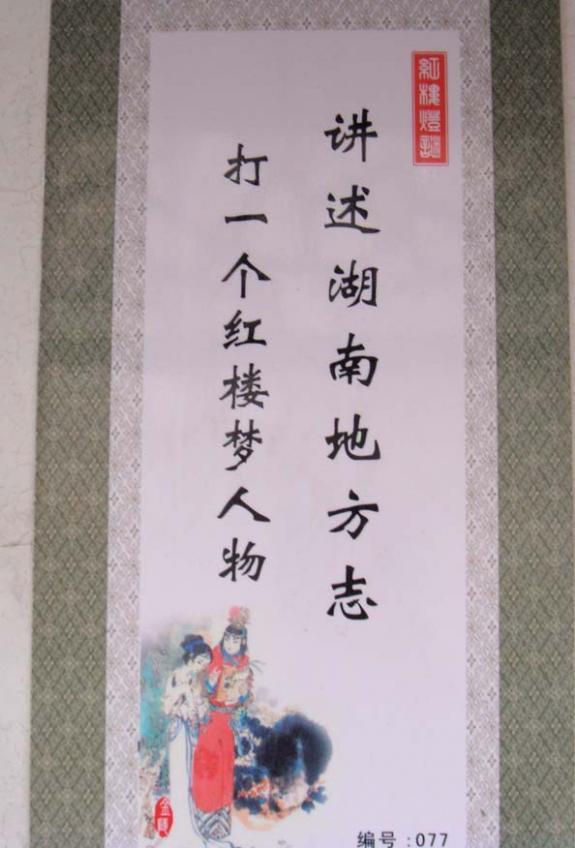 紅樓燈謎
讲述湖南地方志
打一个红楼梦人物
编号:077